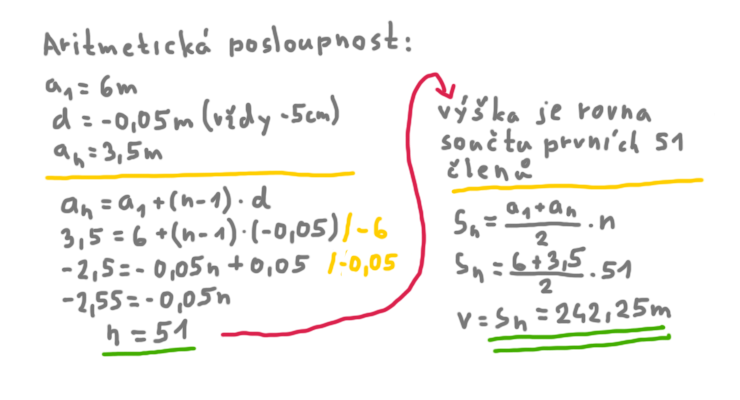 Aritmetická posloupnost:
a₁=6m
d=-0,05m (vždy -5cm)
aₙ=3,5m
aₙ=a₁+(n-1)·d
3,5=6+(n-1)·(-0,05) /-6
-2,5=-0,05n+0,05 /-0,05
-2,55=-0,05n
n=51
výška je rovna
součtu prvních 51
členů
Sₙ=(a₁+aₙ)/2·n
Sₙ=(6+3,5)/2·51
v=Sₙ=242,25m